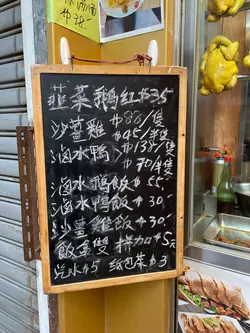 $38.-
韮菜鵝紅$35
沙薑雞 $88/隻
$45/半隻
滷水鴨 $138/隻
$70/半隻
滷水鵝飯$55.-
滷水鴨飯$30.-
沙薑雞飯$30.-
飯盒雙拼加$5元
汽水$5 紙包茶$3